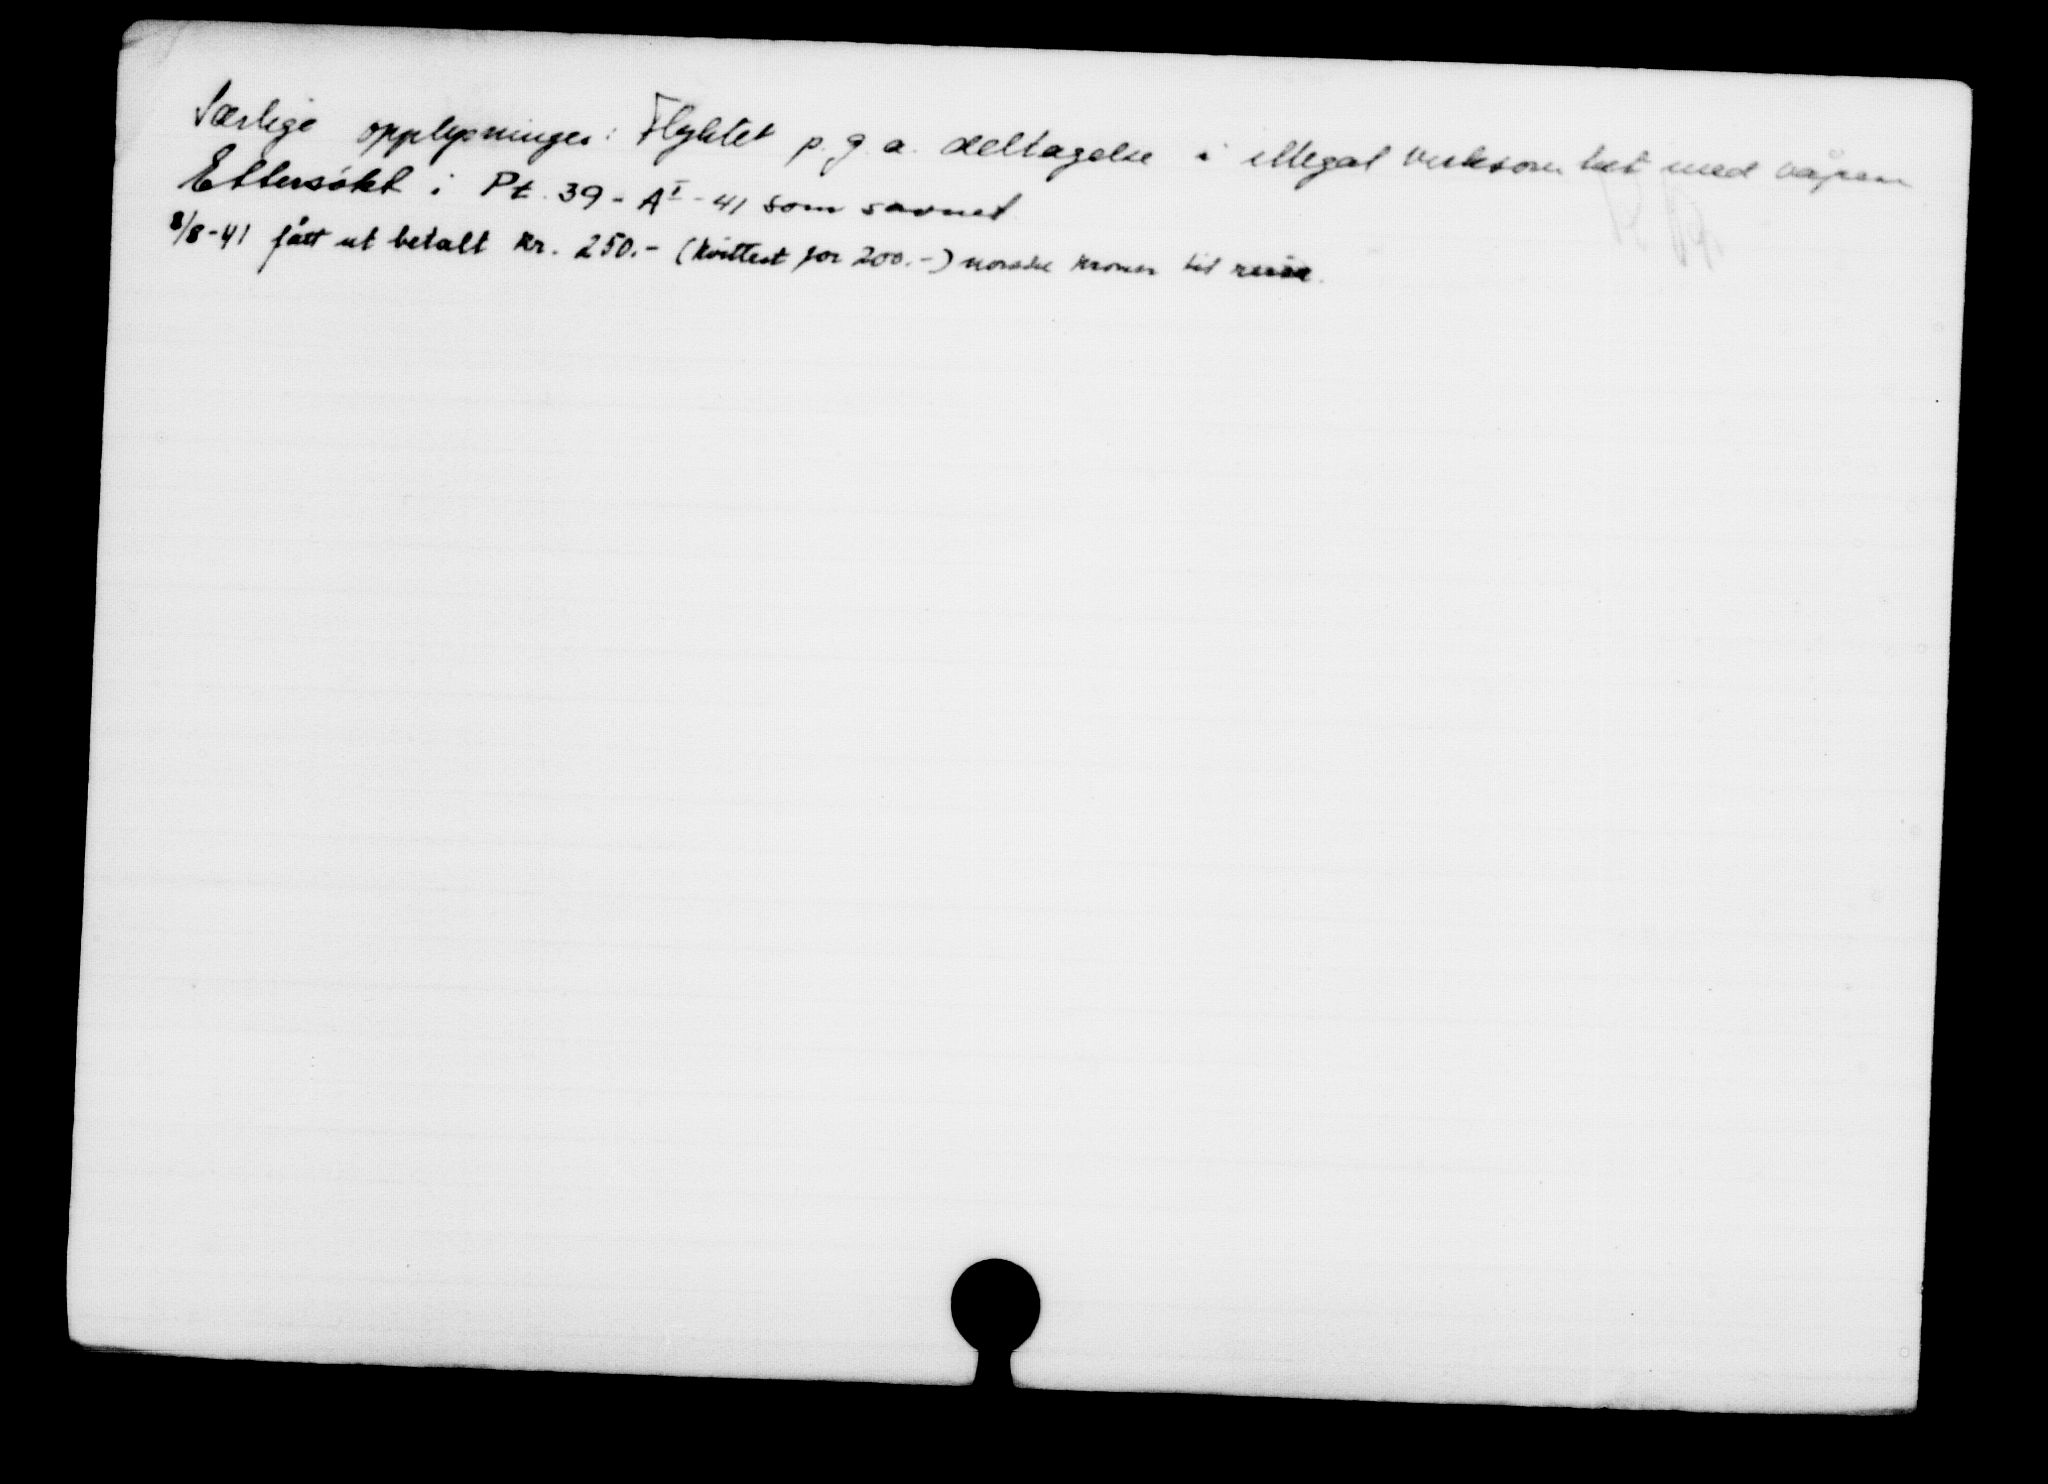 Særlige opplysninger: Flyktet p.g.a. deltagelse i illegal virksomhet med våpen
Ettersökt i Pt. 39 - A I - 41 som savnet
8/8-41 fått utbetalt kr. 250.- (kvittert for 200.-) norske kroner til reise.